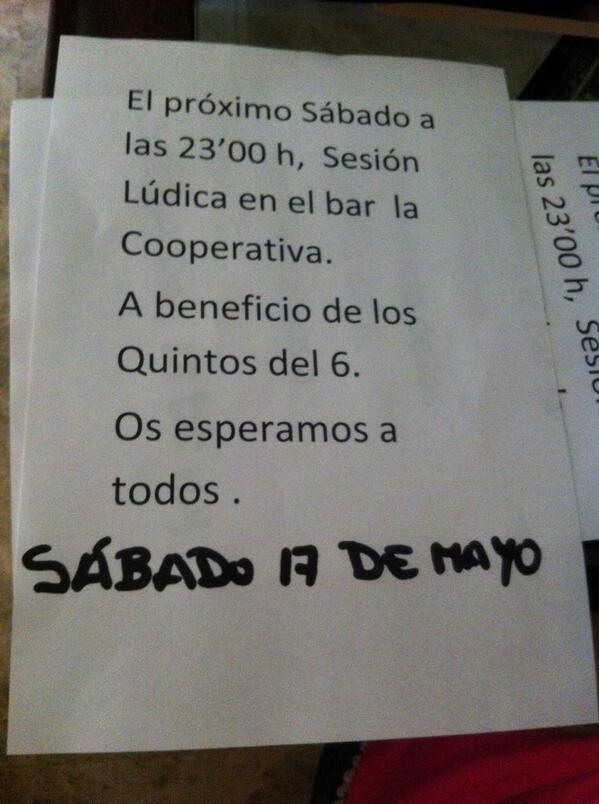 El próximo Sábado a
las 23’00 h, Sesión
Lúdica en el bar la
Cooperativa.
A beneficio de los
Quintos del 6.
Os esperamos a
todos .
SÁBADO 17 DE MAYO
las 23’00 h,